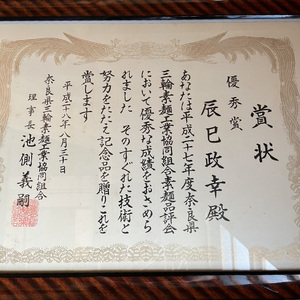 賞状
優秀賞
辰巳政幸殿
あなたは平成二十七年度奈良県
三輪素麺工業協同組合素麺品評会
において優秀な成績をおさめら
れました そのすぐれた技術と
努力をたたえ記念品を贈りこれを
賞します
平成二十八年八月二十日
奈良県三輪素麺工業協同組合
理事長 池側義嗣